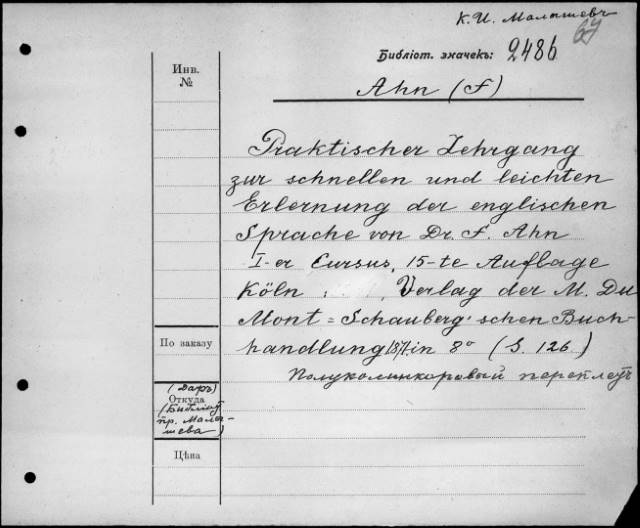 К. И. Малышевъ
67
Библіот. значекъ: 2486
Инв.
№
Ahn (F)
Praktischer Lehrgang
zur schnellen und leichten
Erlernung der englischen
Sprache von Dr. F. Ahn
I-er Cursus, 15-te Auflage
Köln : Verlag der M. Du
Mont = Schauberg'schen Buch-
handlung in 8° (S. 126.)
Полуколинкоровый переплетъ
По заказу
(Даръ)
Откуда
(Библіот.
пр. Малы-
шева)
Цѣна